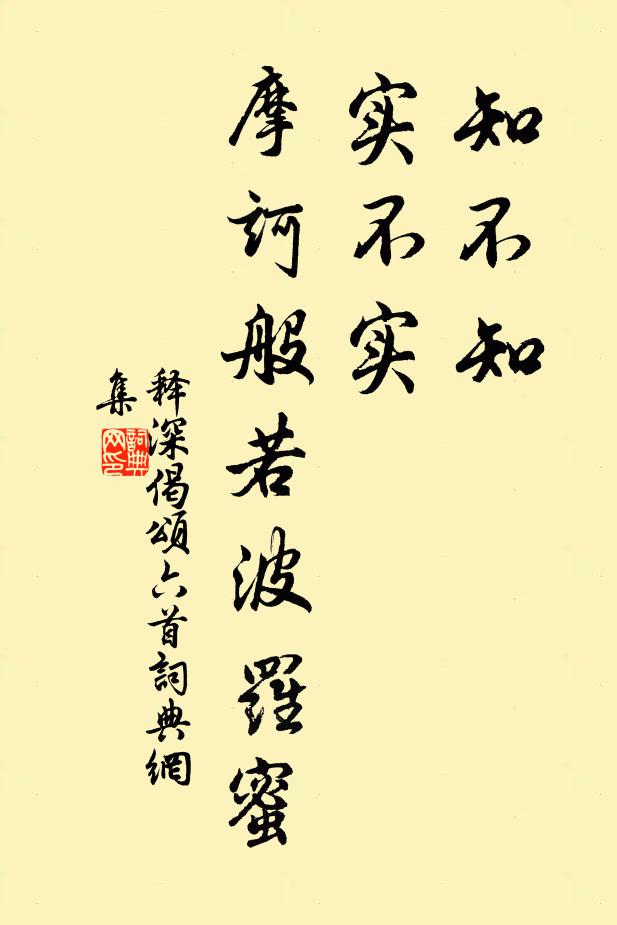 知不知
实不实
摩訶般若波羅蜜
释深偈頌六首詞典網
集
詞典
网印